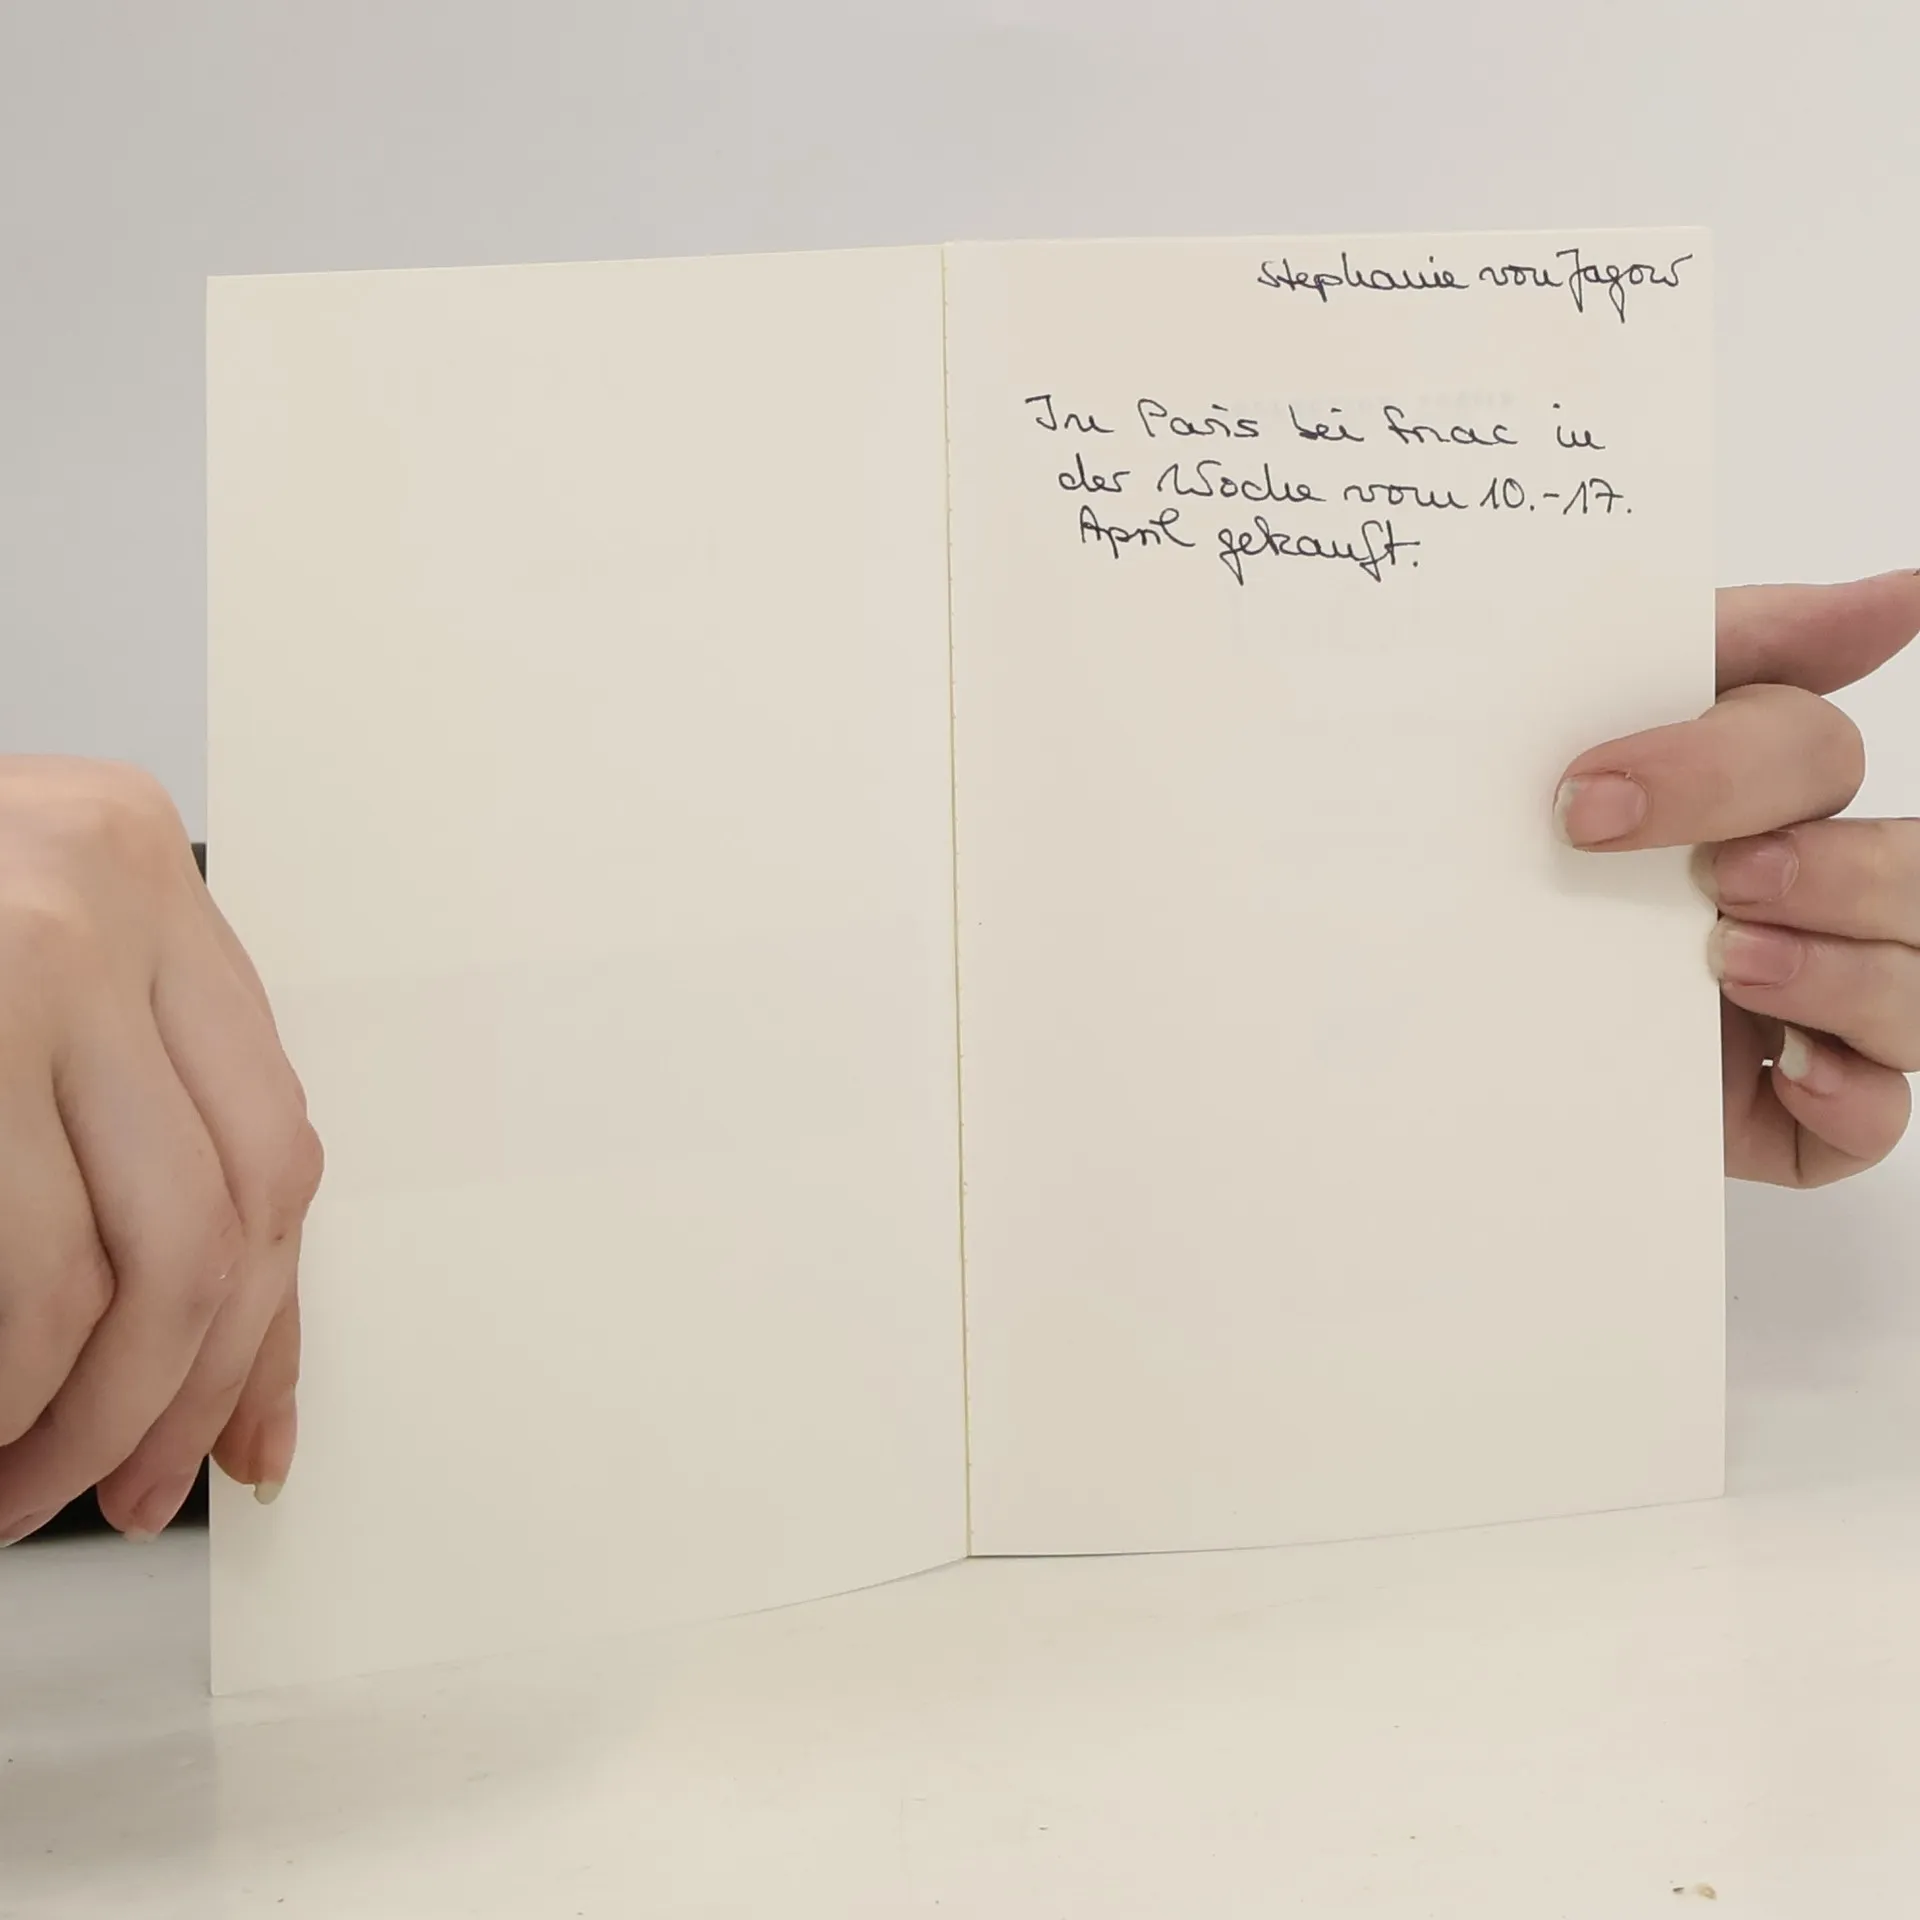 Stephanie von Jagow
In Paris bei fnac in
der Woche vom 10.-17.
April gekauft.